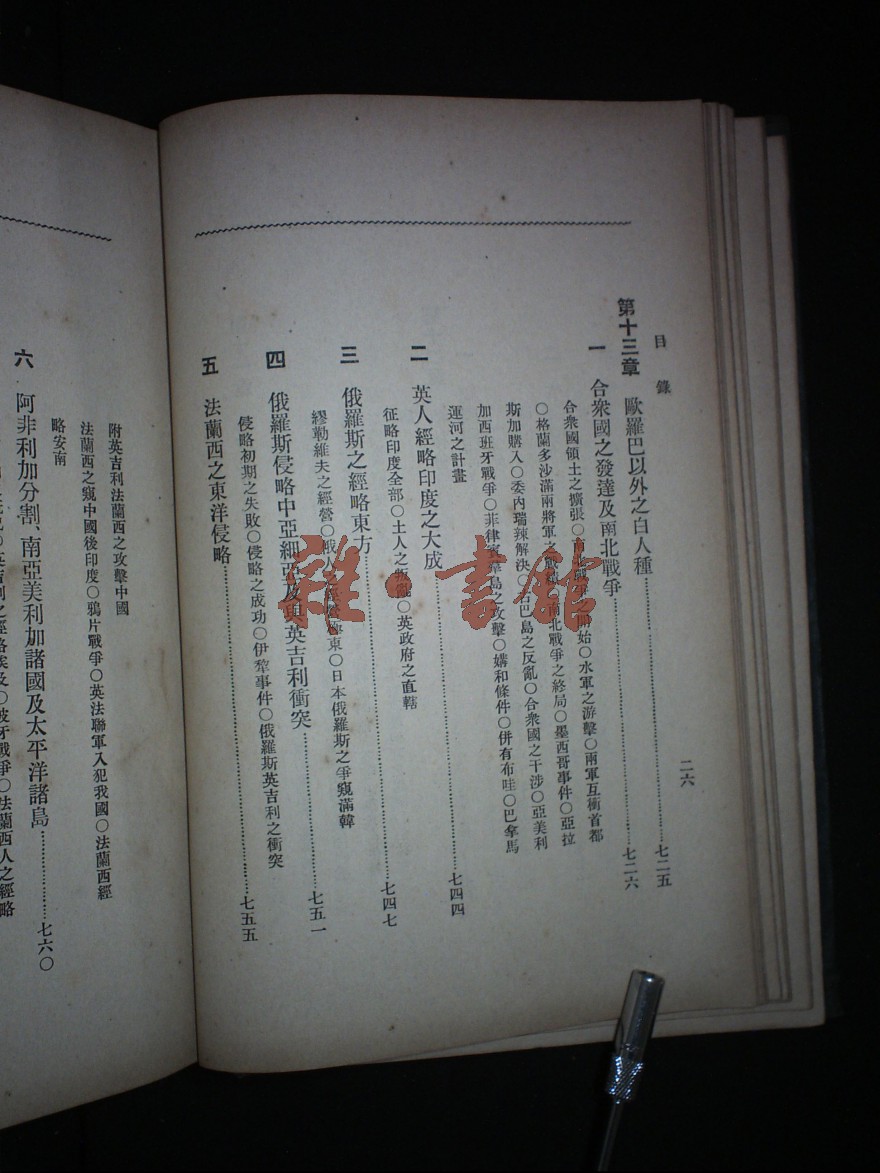 目錄
二六
第十三章 歐羅巴以外之白人種……七二五
一 合衆國之發達及南北戰爭……七二六
合衆國領土之擴張○南北戰爭之開始○水軍之游擊○兩軍互衝首都
○格蘭多沙滿兩將軍之戰績○南北戰爭之終局○墨西哥事件○亞拉
斯加購入○委內瑞辣解決○古巴島之反亂○合衆國之干涉○亞美利
加西班牙戰爭○菲律賓羣島之攻擊○媾和條件○併有布哇○巴拿馬
運河之計畫
二 英人經略印度之大成……七四四
征略印度全部○土人之叛亂○英政府之直轄
三 俄羅斯之經略東方……七四七
繆勒維夫之經營○俄人之經營極東○日本俄羅斯之爭窺滿韓
四 俄羅斯侵略中亞細亞及與英吉利衝突……七五一
侵略初期之失敗○侵略之成功○伊犂事件○俄羅斯英吉利之衝突
五 法蘭西之東洋侵略……七五五
附英吉利法蘭西之攻擊中國
法蘭西之窺中國後印度○鴉片戰爭○英法聯軍入犯我國○法蘭西經
略安南
六 阿非利加分割、南亞美利加諸國及太平洋諸島……七六〇
英吉利之經略埃及○波牙戰爭○法蘭西人之經略
雜·書館